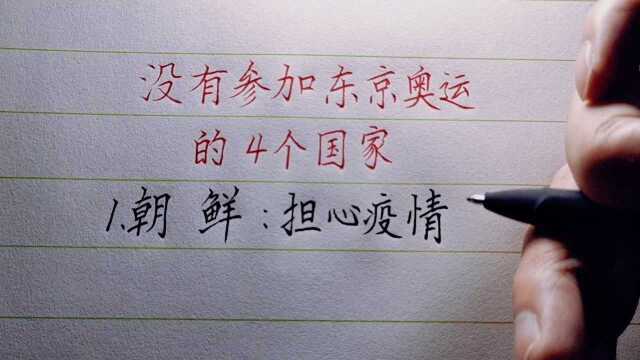 没有参加东京奥运
的4个国家
1.朝鲜:担心疫情